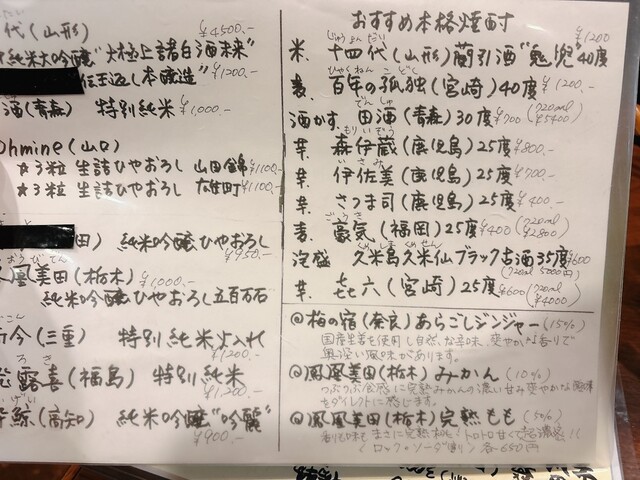 代(山形) ¥4500.-
純米大吟醸"極上諸白酒未来"
伝王返し本醸造" ¥1200.-
酒(青森) 特別純米 ¥1,000.-
Ohmine(山口)
☆3粒 生詰ひやおろし 山田錦 ¥1100.-
☆3粒 生詰ひやおろし 雄町 ¥1100.-
田) 純米吟醸ひやおろし ¥950.-
おうびでん
鳳凰美田(栃木) ¥1,000.-
純米吟醸ひやおろし五百万石
今(三重) 特別純米火入れ ¥1200.-
露喜(福島) 特別純米 ¥1,200.-
げい
鯨(高知) 純米吟醸"吟麗" ¥900.-
おすすめ本格焼酎
じゅうよんだい ¥1200
米 十四代(山形)蘭引酒"鬼兜"40度
ひゃくねん こどく
麦 百年の孤独(宮崎)40度 ¥1200.-
でんしゅ
酒かす 田酒(青森)30度 ¥700 (720ml ¥5400)
もりいぞう
芋 森伊蔵(鹿児島)25度 ¥800.-
いさみ
芋 伊佐美(鹿児島)25度 ¥700.-
芋 さつま司(鹿児島)25度 ¥400.-
ごうき
麦 豪気(福岡)25度 ¥400 (720ml ¥2800)
くめじま くめせん
泡盛 久米島久米仙ブラック古酒35度 ¥600
(720ml 5000円)
芋 㐂六(宮崎)25度 ¥600 (720ml ¥4000)
@梅の宿(奈良)あらごしジンジャー(15%)
国産生姜を使用し自然な辛味、爽やかな香りで
奥深い風味があります。
@鳳凰美田(栃木)みかん(10%)
つぶつぶ食感に完熟みかんの濃い甘み爽やかな酸味
をダイレクトに感じます。
@鳳凰美田(栃木)完熟もも(5%)
香りも味もまさに完熟もも!トロトロ甘くて超濃密!!
(ロック・ソーダ割り)各650円